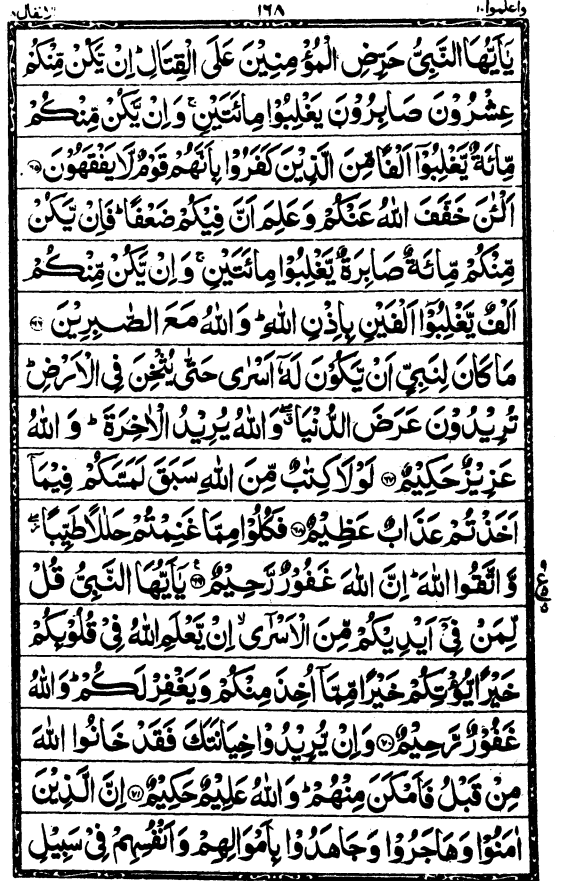 واعلموا ١٠ ١٦٨ الانفال ٨
يٰۤاَيُّهَا النَّبِيُّ حَرِّضِ الْمُؤْمِنِيْنَ عَلَى الْقِتَالِ ؕ اِنْ يَّكُنْ مِّنْكُمْ
عِشْرُوْنَ صَابِرُوْنَ يَغْلِبُوْا مِائَتَيْنِ ۚ وَاِنْ يَّكُنْ مِّنْكُمْ
مِّائَةٌ يَّغْلِبُوْۤا اَلْفًا مِّنَ الَّذِيْنَ كَفَرُوْا بِاَنَّهُمْ قَوْمٌ لَّا يَفْقَهُوْنَ ﴿٦٥﴾
اَلْئٰنَ خَفَّفَ اللّٰهُ عَنْكُمْ وَعَلِمَ اَنَّ فِيْكُمْ ضَعْفًا ؕ فَاِنْ يَّكُنْ
مِّنْكُمْ مِّائَةٌ صَابِرَةٌ يَّغْلِبُوْا مِائَتَيْنِ ۚ وَاِنْ يَّكُنْ مِّنْكُمْ
اَلْفٌ يَّغْلِبُوْۤا اَلْفَيْنِ بِاِذْنِ اللّٰهِ ؕ وَاللّٰهُ مَعَ الصّٰبِرِيْنَ ﴿٦٦﴾
مَا كَانَ لِنَبِيٍّ اَنْ يَّكُوْنَ لَهٗۤ اَسْرٰى حَتّٰى يُثْخِنَ فِى الْاَرْضِ ؕ
تُرِيْدُوْنَ عَرَضَ الدُّنْيَا ۖ وَاللّٰهُ يُرِيْدُ الْاٰخِرَةَ ؕ وَاللّٰهُ
عَزِيْزٌ حَكِيْمٌ ﴿٦٧﴾ لَوْلَا كِتٰبٌ مِّنَ اللّٰهِ سَبَقَ لَمَسَّكُمْ فِيْمَاۤ
اَخَذْتُمْ عَذَابٌ عَظِيْمٌ ﴿٦٨﴾ فَكُلُوْا مِمَّا غَنِمْتُمْ حَلٰلًا طَيِّبًا ۖ
وَّاتَّقُوا اللّٰهَ ؕ اِنَّ اللّٰهَ غَفُوْرٌ رَّحِيْمٌ ﴿٦٩﴾ يٰۤاَيُّهَا النَّبِيُّ قُلْ
لِّمَنْ فِيْۤ اَيْدِيْكُمْ مِّنَ الْاَسْرٰٓى ۙ اِنْ يَّعْلَمِ اللّٰهُ فِيْ قُلُوْبِكُمْ
خَيْرًا يُّؤْتِكُمْ خَيْرًا مِّمَّاۤ اُخِذَ مِنْكُمْ وَيَغْفِرْ لَكُمْ ؕ وَاللّٰهُ
غَفُوْرٌ رَّحِيْمٌ ﴿٧٠﴾ وَاِنْ يُّرِيْدُوْا خِيَانَتَكَ فَقَدْ خَانُوا اللّٰهَ
مِنْ قَبْلُ فَاَمْكَنَ مِنْهُمْ ؕ وَاللّٰهُ عَلِيْمٌ حَكِيْمٌ ﴿٧١﴾ اِنَّ الَّذِيْنَ
اٰمَنُوْا وَهَاجَرُوْا وَجَاهَدُوْا بِاَمْوَالِهِمْ وَاَنْفُسِهِمْ فِيْ سَبِيْلِ